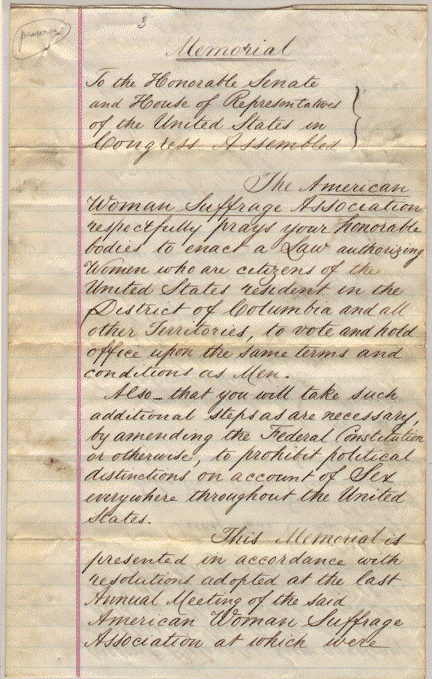 preserve
3
Memorial
To the Honorable Senate
and House of Representatives
of the United States in
Congress Assembled
The American
Woman Suffrage Association
respectfully prays your honorable
bodies to enact a Law authorizing
Women who are citizens of the
United States resident in the
District of Columbia and all
other Territories, to vote and hold
office upon the same terms and
conditions as Men.
Also – that you will take such
additional steps as are necessary,
by amending the Federal Constitution
or otherwise, to prohibit political
distinctions on account of Sex
everywhere throughout the United
States.
This Memorial is
presented in accordance with
resolutions adopted at the last
Annual Meeting of the said
American Woman Suffrage
Association at which were